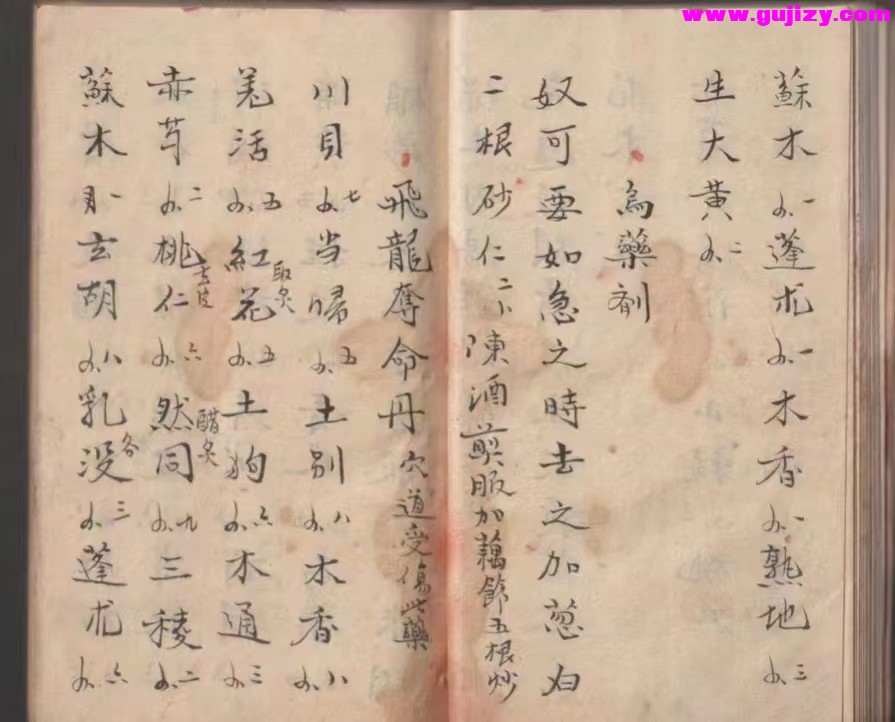 www.gujizy.com
蘇木一 蓬朮一 木香一 熟地三
生大黃二
為藥劑
奴可要如急之時去之加蔥白
二根砂仁二 陳酒煎服加藕節五根炒
飛龍奪命丹 穴道受傷此藥
川貝七 当歸五 土別八 木香八
羌活五 紅花取炙五 土狗六 木通三
赤芍二 桃仁去皮六 然同醋炙九 三稜二
蘇木一 玄胡八 乳没各三 蓬朮六